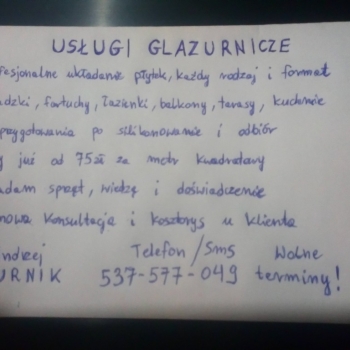 USŁUGI GLAZURNICZE
fesjonalne układanie płytek, każdy rodzaj i format
adzki, fartuchy, Łazienki, balkony, tarasy, kuchnie
przygotowania po silikonowanie i odbiór
już od 75zł za metr kwadratowy
adam sprzęt, wiedzę i doświadczenie
mowa konsultacja i kosztorys u klienta
ndrzej Telefon/sms Wolne
URNIK 537-577-049 terminy!